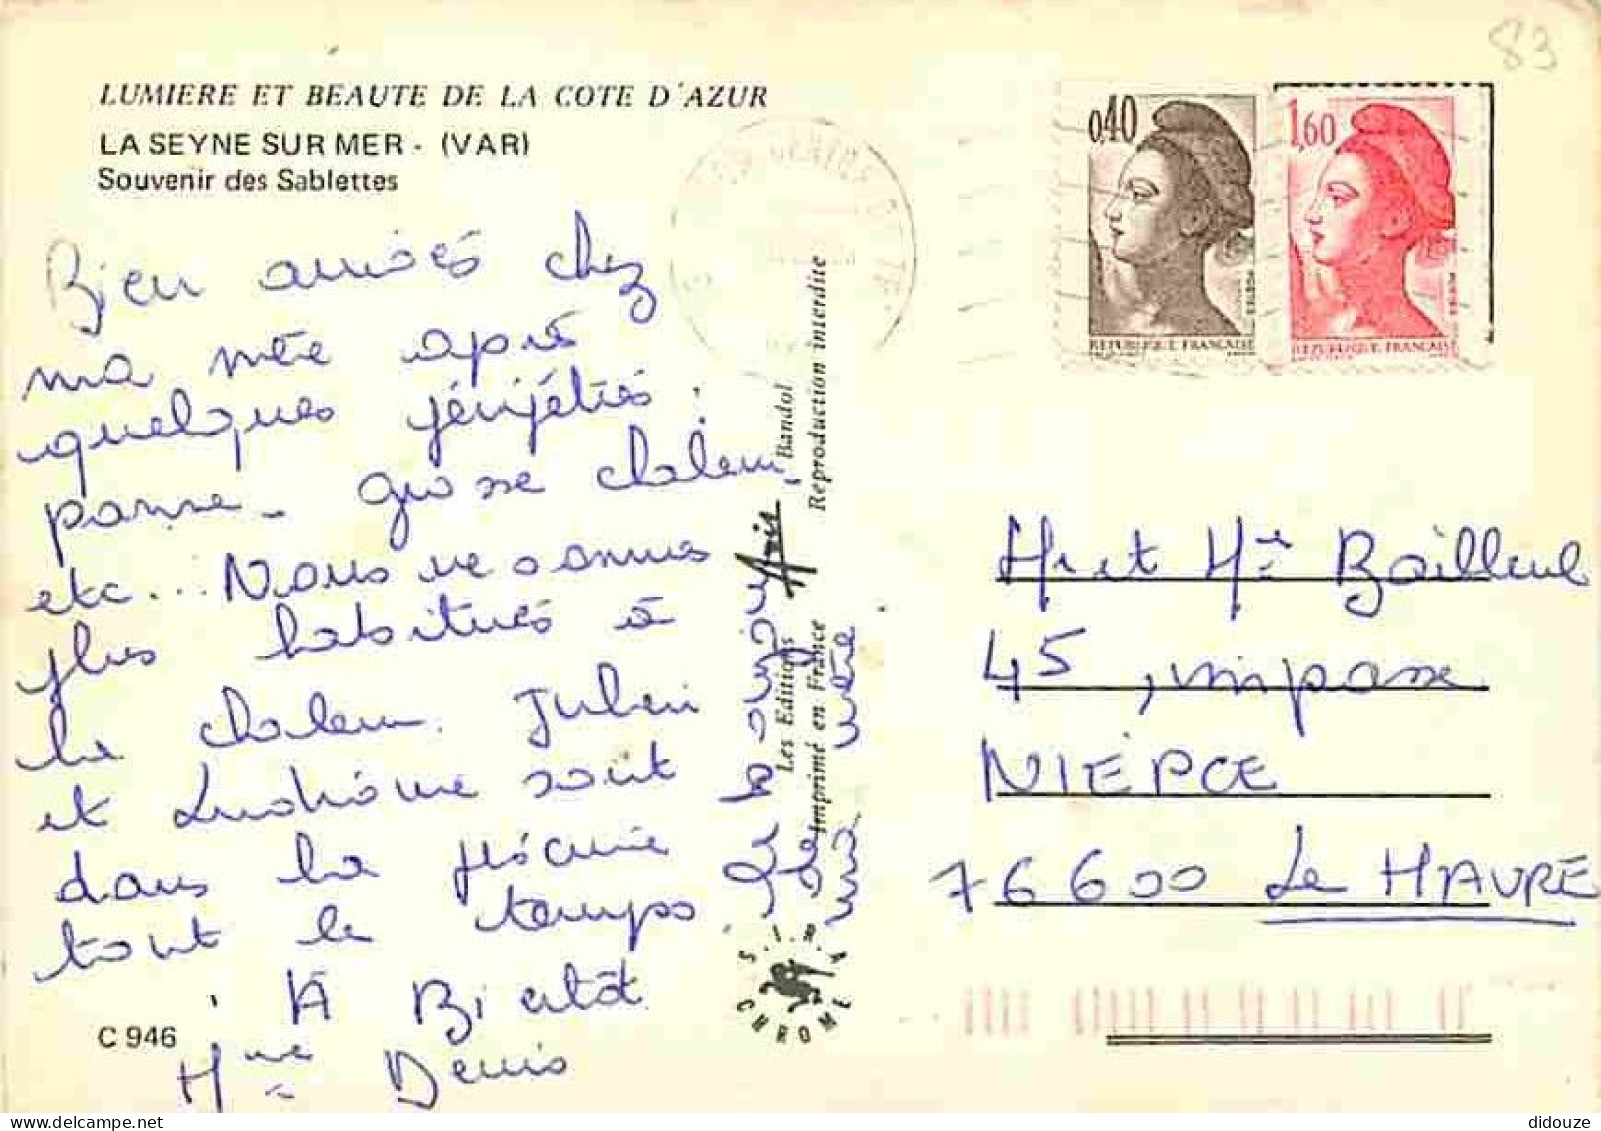 LUMIERE ET BEAUTE DE LA COTE D'AZUR
LA SEYNE SUR MER - (VAR)
Souvenir des Sablettes
Bien arrivés chez
ma mère après
quelques péripéties :
panne - grosse chaleur,
etc... Nous ne sommes
plus habitués à
la chaleur. Julien
et Ludivine sont
dans la piscine
tout le temps.
A Bientôt
Mme Denis
C 946
Les Editions Aris, Bandol
Imprimé en France
Reproduction interdite
S.I.M.A
CHROME
83
0,40
POSTES
REPUBLIQUE FRANCAISE
1,60
POSTES
REPUBLIQUE FRANCAISE
Mr et Me Bailleul
45, impasse
NIEPCE
76600 Le HAVRE
didouze
delcampe.net